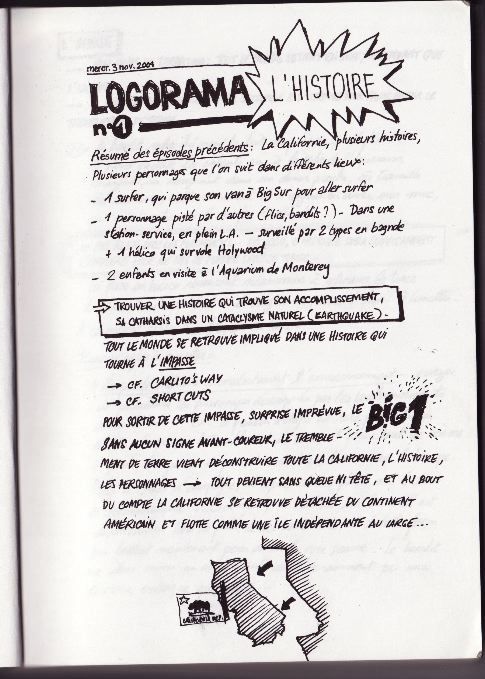 mercr. 3 nov. 2004
LOGORAMA
L'HISTOIRE
n°1
Résumé des épisodes précédents: La Californie, plusieurs histoires,
Plusieurs personnages que l'on suit dans différents lieux:
- 1 surfer, qui parque son van à Big Sur pour aller surfer
- 1 personnage pisté par d'autres (flics, bandits?) - Dans une
station-service, en plein L.A. - surveillé par 2 types en bagnole
+ 1 hélico qui survole Holywood
- 2 enfants en visite à l'Aquarium de Monterey
→ TROUVER UNE HISTOIRE QUI TROUVE SON ACCOMPLISSEMENT,
SA CATHARSIS DANS UN CATACLYSME NATUREL (EARTHQUAKE).
TOUT LE MONDE SE RETROUVE IMPLIQUÉ DANS UNE HISTOIRE QUI
TOURNE À L'IMPASSE
→ CF. CARLITO'S WAY
→ CF. SHORT CUTS
POUR SORTIR DE CETTE IMPASSE, SURPRISE IMPRÉVUE, LE BIG 1
SANS AUCUN SIGNE AVANT-COUREUR, LE TREMBLE-
MENT DE TERRE VIENT DÉCONSTRUIRE TOUTE LA CALIFORNIE, L'HISTOIRE,
LES PERSONNAGES → TOUT DEVIENT SANS QUEUE NI TÊTE, ET AU BOUT
DU COMPTE LA CALIFORNIE SE RETROUVE DÉTACHÉE DU CONTINENT
AMÉRICAIN ET FLOTTE COMME UNE ÎLE INDÉPENDANTE AU LARGE...
CALIFORNIA REP.